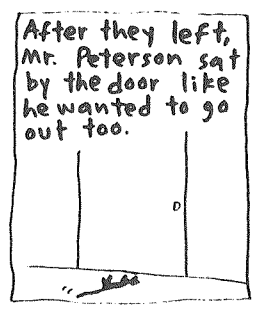 After they left,
Mr. Peterson sat
by the door like
he wanted to go
out too.